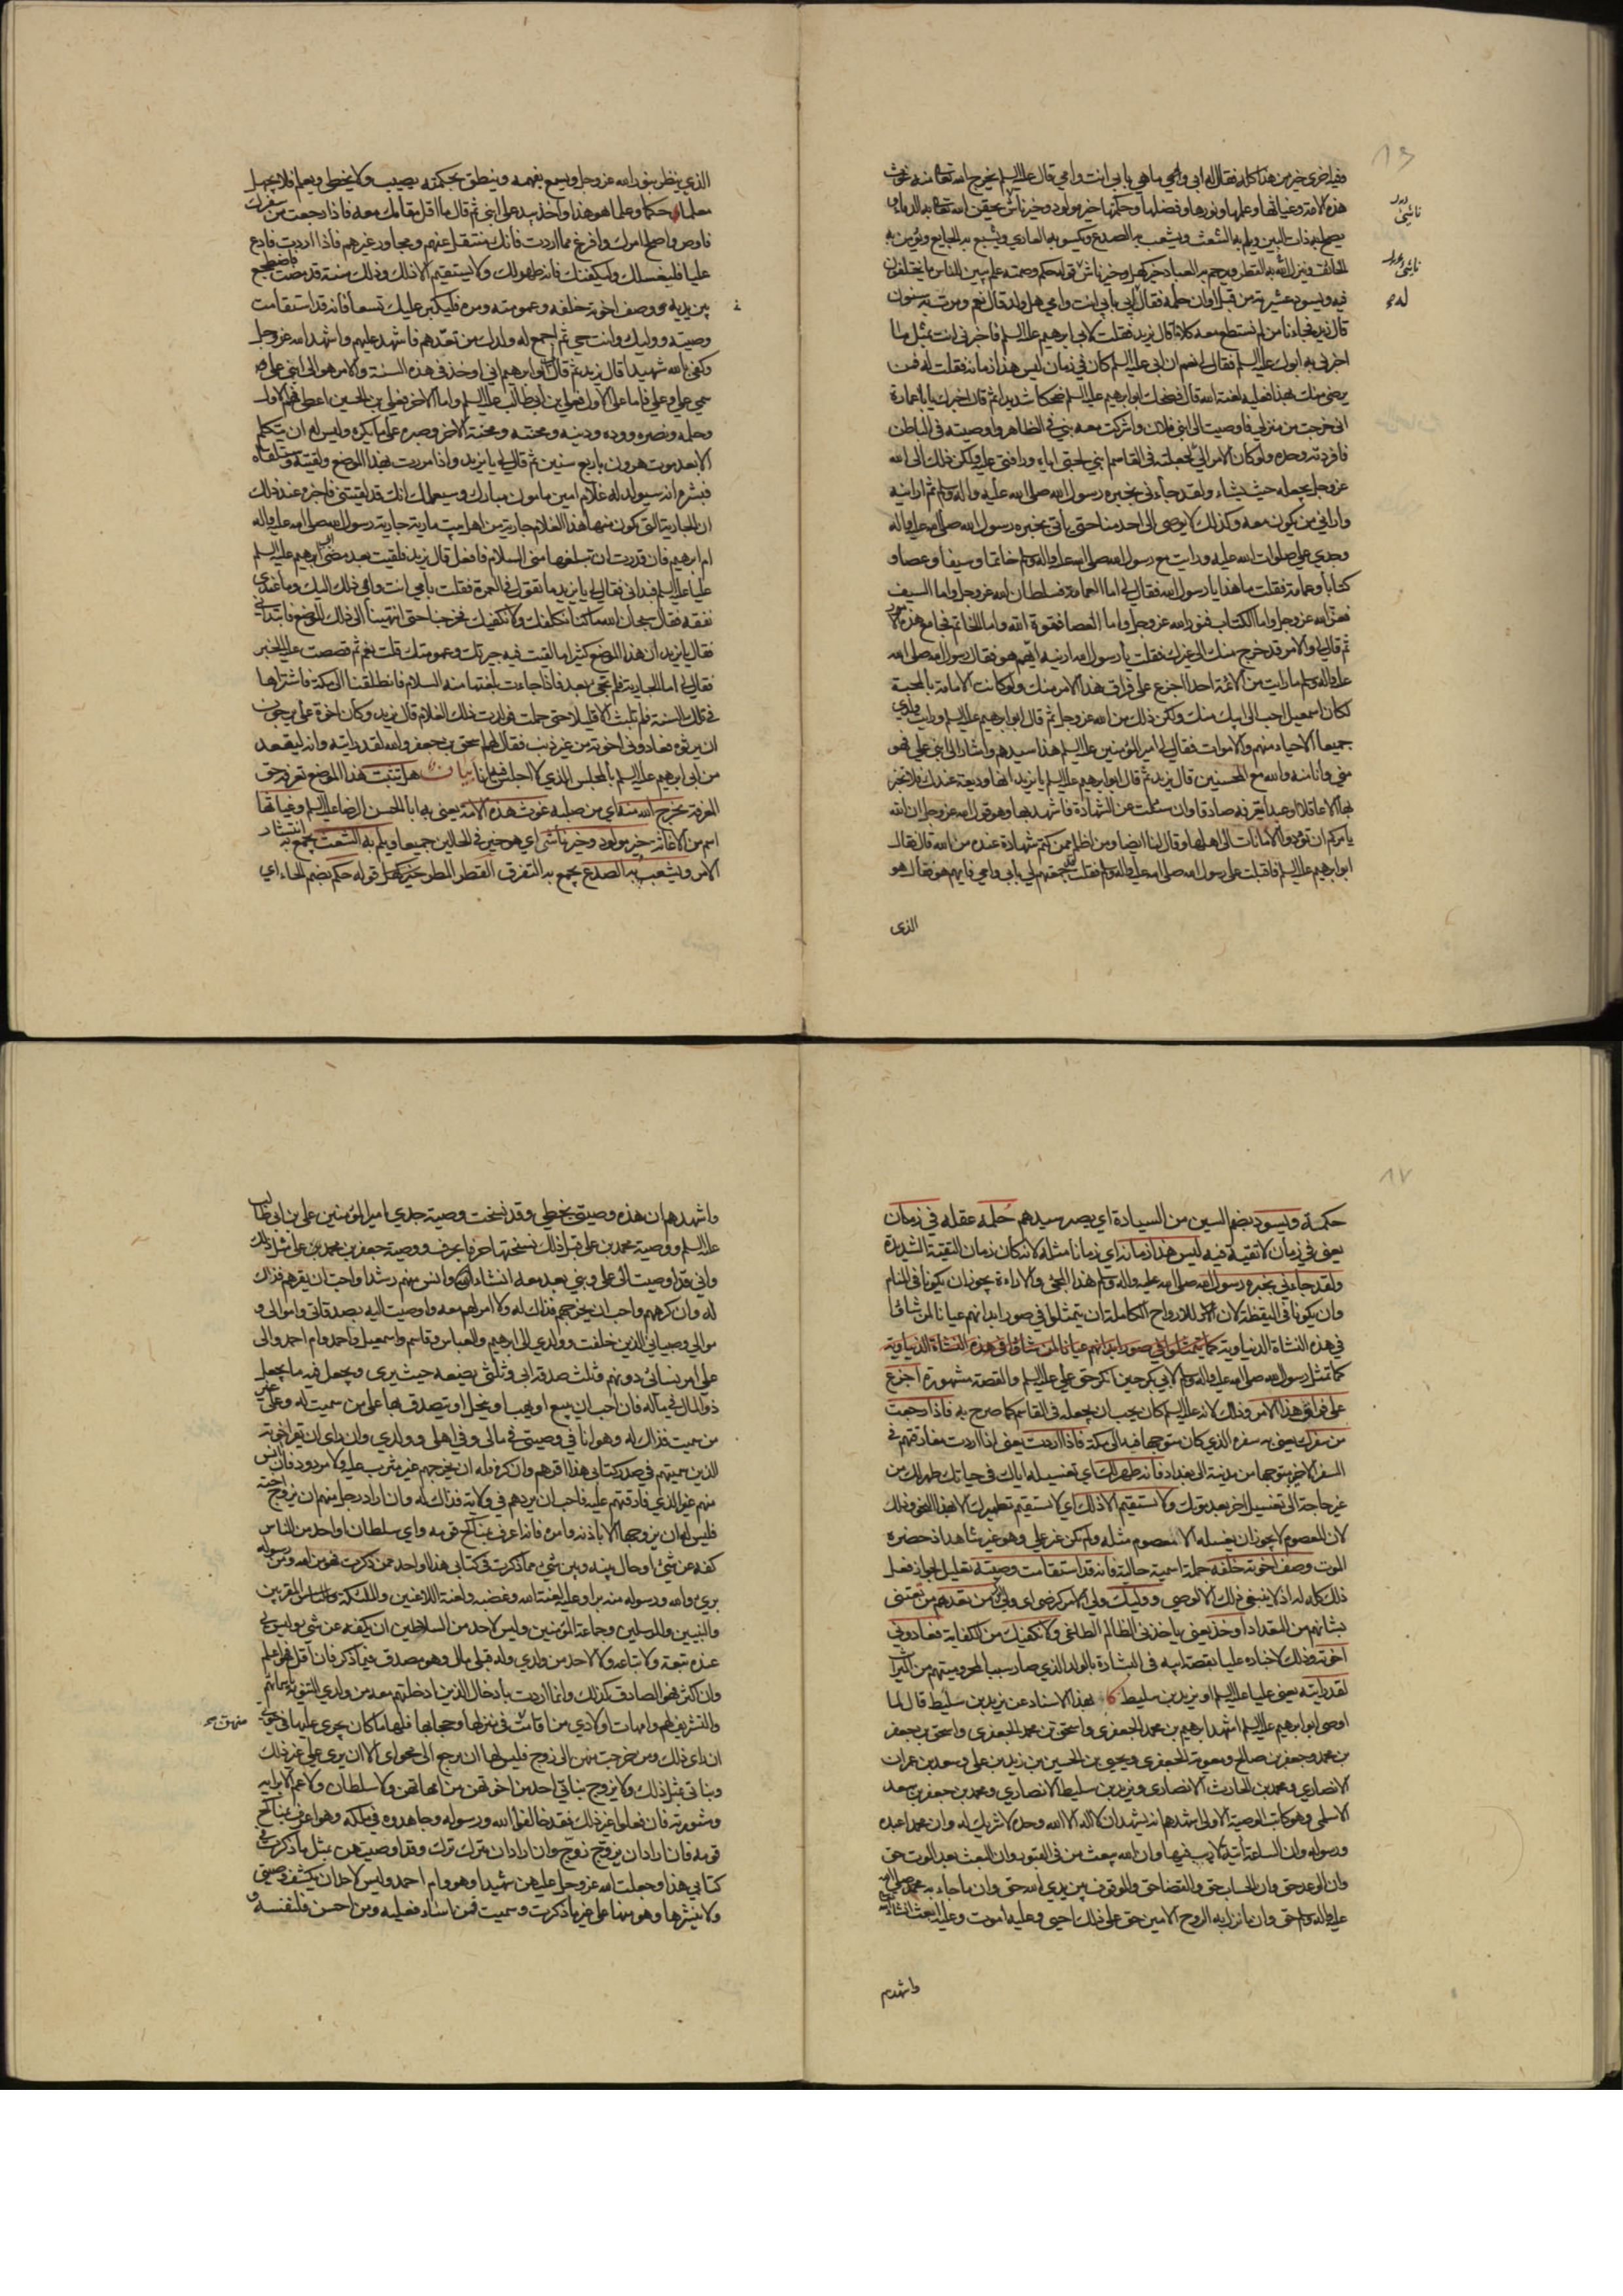 وفيه اخرى خير من هذا كله فقال له ابي وامي ما هي بابي انت وامي قال عليه السلم يخرج الله تعالى منه غوث
هذه الامة وغياثها وعلمها ونورها وفضلها وحكمتها خير مولود وخير ناش يحقن الله تعالى به الدماء و
يصلح به ذات البين ويلم به الشعث ويشعب به الصدع ويكسو به العاري ويشبع به الجايع ويؤمن به
الخائف وينزل الله به القطر ويرحم به العباد خير كهل وخير ناش قوله حكم وصمته علم يبين للناس ما يختلفون
فيه ويسود عشيرته من قبل اوان حلمه فقال له ابي بابي انت وامي هل ولد قال نعم ومرت به سنون
قال يزيد فجاءنا من لم نستطع معه كلاما قال يزيد فقلت لابي ابرهيم عليه السلم فاخبرني انت بمثل ما
اخبرني به ابوك عليه السلم فقال لي نعم ان ابي عليه السلم كان في زمان ليس هذا زمانه فقلت له فمن
يرضى منك بهذا فعليه لعنة الله قال فضحك ابو ابرهيم عليه السلم ضحكا شديدا ثم قال اخبرك يا با عمارة
اني خرجت من منزلي فاوصيت الى ابني فلان واشركت معه بني في الظاهر واوصيته في الباطن
فافردته وحده ولو كان الامر الي لجعلته في القاسم ابني لحبي اياه ورافتي عليه ولكن ذلك الى الله
عز وجل يجعله حيث يشاء ولقد جاءني بخبره رسول الله صلى الله عليه واله وسلم ثم ارانيه
واراني من يكون معه وكذلك لا يوصى الى احد منا حتى ياتي بخبره رسول الله صلى الله عليه واله
وجدي علي صلوات الله عليه ورايت مع رسول الله صلى الله عليه واله وسلم خاتما وسيفا وعصا و
كتابا وعمامة فقلت ما هذا يا رسول الله فقال لي اما العمامة فسلطان الله عز وجل واما السيف
فعز الله عز وجل واما الكتاب فنور الله عز وجل واما العصا فقوة الله واما الخاتم فجامع هذه الامور
ثم قال لي والامر قد خرج منك الى غيرك فقلت يا رسول الله ارنيه ايهم هو فقال رسول الله صلى الله
عليه واله وسلم ما رايت من الائمة احدا اجزع على فراق هذا الامر منك ولو كانت الامامة بالمحبة
لكان اسمعيل احب الى ابيك منك ولكن ذلك من الله عز وجل ثم قال ابو ابرهيم عليه السلم ورايت ولدي
جميعا الاحياء منهم والاموات فقال لي امير المؤمنين عليه السلم هذا سيدهم واشار الى ابني علي فهو
مني وانا منه والله مع المحسنين قال يزيد ثم قال ابو ابرهيم عليه السلم يا يزيد انها وديعة عندك فلا تخبر
بها الا عاقلا او عبدا تعرفه صادقا وان سئلت عن الشهادة فاشهد بها وهو قول الله عز وجل ان الله
يامركم ان تؤدوا الامانات الى اهلها وقال لنا ايضا ومن اظلم ممن كتم شهادة عنده من الله قال فقال
ابو ابرهيم عليه السلم فاقبلت على رسول الله صلى الله عليه واله وسلم فقلت قد جمعتهم لي بابي وامي فايهم هو فقال هو
الذي
الذي ينظر بنور الله عز وجل ويسمع بفهمه وينطق بحكمته يصيب ولا يخطي ويعلم فلا يجهل
معلما حكما وعلما هو هذا واخذ بيد علي ابني ثم قال ما اقل مقامك معه فاذا رجعت من سفرك
فاوص واصلح امرك وافرغ مما اردت فانك منتقل عنهم ومجاور غيرهم فاذا اردت فادع
عليا فليغسلك وليكفنك فانه طهر لك ولا يستقيم الا ذلك وذلك سنة قد مضت فاضطجع
بين يديه وصف اخوته خلفه وعمومته ومره فليكبر عليك تسعا فانه قد استقامت
وصيته ووليك وانت حي ثم اجمع له ولدك من تعدهم فاشهد عليهم واشهد الله عز وجل
وكفى بالله شهيدا قال يزيد ثم قال لي ابو ابرهيم اني اوخذ في هذه السنة والامر هو الى ابني علي
سمي علي وعلي فاما علي الاول فعلي بن ابي طالب عليه السلم واما الاخر فعلي بن الحسين اعطي فهم الاول
وحلمه ونصره ووده ودينه ومحنته ومحنة الاخر وصبره على ما يكره وليس له ان يتكلم
الا بعد موت هرون باربع سنين ثم قال لي يا يزيد واذا مررت بهذا الموضع ولقيته وستلقاه
فبشره انه سيولد له غلام امين مامون مبارك وسيعلمك انك قد لقيتني فاخبره عند ذلك
ان الجارية التي يكون منها هذا الغلام جارية من اهل بيت مارية جارية رسول الله صلى الله عليه واله
ام ابرهيم فان قدرت ان تبلغها مني السلام فافعل قال يزيد فلقيت بعد مضي ابي ابرهيم عليه السلم
عليا عليه السلم فبداني فقال لي يا يزيد ما تقول في العمرة فقلت بابي انت وامي ذلك اليك وما عندي
نفقة فقال سبحان الله ما كنا نكلفك ولا نكفيك فخرجنا حتى انتهينا الى ذلك الموضع فابتداني
فقال يا يزيد ان هذا الموضع كثيرا ما لقيت فيه جيرتك وعمومتك قلت نعم ثم قصصت عليه الخبر
فقال لي اما الجارية فلم تجئ بعد فاذا جاءت بلغتها منه السلام فانطلقنا الى مكة فاشتراها
في تلك السنة فلم تلبث الا قليلا حتى حملت فولدت ذلك الغلام قال يزيد وكان اخوة علي يرجون
ان يرثوه فعادوني اخوته من غير ذنب فقال لهم اسحق بن جعفر والله لقد رايته وانه ليقعد
من ابي ابرهيم عليه السلم بالمجلس الذي لا اجلس فيه انا بيان هل تثبت هذا الموضع تعرفه حق
المعرفة يخرج الله منه اي من صلبه غوث هذه الامة يعني به ابا الحسن الرضا عليه السلم وغياثها
اسم من الاغاثة خير مولود وخير ناش اي هو خير في الحالين جميعا ويلم به الشعث يجمع به انتشار
الامر ويشعب به الصدع يجمع به التفرق القطر المطر خير كهل قوله حكم بضم الحاء اي
حكمة ويسود بضم السين من السيادة اي يصير سيدهم حلمه عقله في زمان
يعني في زمان لا تقية فيه ليس هذا زمانه اي زمانا مثله لانه كان زمان التقية الشديدة
ولقد جاءني بخبره رسول الله صلى الله عليه واله وسلم هذا المجئ والاراءة يجوز ان يكونا في المنام
وان يكونا في اليقظة لان للارواح الكاملة ان يتمثلوا في صور ابدانهم عيانا لمن شاؤا
في هذه النشاة الدنياوية كما يتمثلوا في صور ابدانهم عيانا لمن شاؤا في هذه النشاة الدنياوية
كما تمثل رسول الله صلى الله عليه واله وسلم لابي بكر حين انكر حق علي عليه السلم والقصة مشهورة اجزع
على فراق هذا الامر وذلك لانه عليه السلم كان يحب ان يجعله في القاسم كما صرح به فاذا رجعت
من سفرك يعني به سفره الذي كان متوجها فيه الى مكة فاذا اردت يعني اذا اردت مفارقتهم في
السفر الاخير متوجها من مدينة الى بغداد فانه طهر لك اي تغسيله اياك في حياتك طهر لك من
غير حاجة الى تغسيل اخر بعد موتك ولا تستقيم الا ذلك اي لا تستقيم تطهيرك الا بهذا النحو وذلك
لان المعصوم لا يجوز ان يغسله الا معصوم مثله ولم يكن غير علي وهو غير شاهد اذ حضره
الموت وصف اخوته خلفه جملة اسمية حالية فانه قد استقامت وصيته تعليل لجواز فعل
ذلك كله له اذ لا ينبغي ذلك الا لوصي ووليك ولي الامر كرضي اي ولي من تعدهم من تعتني
بشانهم من التعداد اوخذ يعني ياخذني الظالم الطاغي ولا نكفيك من الكفاية فعادوني
اخوته وذلك لاخباره عليا بقصة ابيه في البشارة بالولد الذي صار سببا لمحروميتهم من الميراث
لقد رايته يعني عليا عليه السلم او يزيد بن سليط كا بهذا الاسناد عن يزيد بن سليط قال لما
اوصى ابو ابرهيم عليه السلم اشهد ابرهيم بن محمد الجعفري واسحق بن محمد الجعفري واسحق بن جعفر
بن محمد وجعفر بن صالح ومعوية الجعفري ويحيى بن الحسين بن زيد بن علي وسعد بن عمران
الانصاري ومحمد بن الحارث الانصاري ويزيد بن سليط الانصاري ومحمد بن جعفر بن سعد
الاسلمي وهو كاتب الوصية الاولى اشهدهم انه يشهد ان لا اله الا الله وحده لا شريك له وان محمدا عبده
ورسوله وان الساعة آتية لا ريب فيها وان الله يبعث من في القبور وان البعث بعد الموت حق
وان الوعد حق وان الحساب حق والقضاء حق والوقوف بين يدي الله حق وان ما جاء به محمد صلى الله
عليه واله وسلم حق وان ما نزل به الروح الامين حق على ذلك احيى وعليه اموت وعليه ابعث انشاء الله
واشهدهم
واشهدهم ان هذه وصيتي بخطي وقد نسخت وصية جدي امير المؤمنين علي بن ابي طالب
عليه السلم ووصية محمد بن علي قبل ذلك نسختها حرفا بحرف ووصية جعفر بن محمد بن علي مثل ذلك
واني قد اوصيت الى علي وبني بعد معه انشاء الله وانس منهم رشدا واحب ان يقرهم فذاك
له وان كرههم واحب ان يخرجهم فذاك له ولا امر لهم معه واوصيت اليه بصدقاتي واموالي و
موالي وصبياني الذين خلفت وولدي الى ابرهيم والعباس وقاسم واسمعيل واحمد وام احمد والى
علي امر نسائي دونهم وثلث صدقة ابي وثلثي يضعه حيث يرى ويجعل فيه ما يجعل
ذو المال في ماله فان احب ان يبيع او يهب او ينحل او يتصدق بها على من سميت له وعلى غير
من سميت فذاك له وهو انا في وصيتي في مالي وفي اهلي وولدي وان راى ان يقر اخوته
الذين سميتهم في صدر كتابي هذا اقرهم وان كره فله ان يخرجهم غير مثرب عليه ولا مردود فان انس
منهم غير الذي فارقتهم عليه فاحب ان يردهم في ولاية فذاك له وان اراد رجل منهم ان يزوج اخته
فليس له ان يزوجها الا باذنه وامره فانه اعرف بمناكح قومه واي سلطان او احد من الناس
كفه عن شئ او حال بينه وبين شئ مما ذكرت في كتابي هذا او احد ممن ذكرت فهو من الله ومن رسوله
برئ والله ورسوله منه براء وعليه لعنة الله وغضبه ولعنة اللاعنين والملئكة المقربين
والنبيين والمرسلين وجماعة المؤمنين وليس لاحد من السلاطين ان يكفه عن شئ وليس لي
عنده تبعة ولا تباعة ولا لاحد من ولدي وله قبلي مال وهو مصدق فيما ذكر فان اقل فهو اعلم
وان اكثر فهو الصادق كذلك وانما اردت بادخال الذين ادخلتهم معه من ولدي التنويه باسمائهم
والتشريف لهم وامهات اولادي من اقامت في منزلها وحجابها فلها ما كان يجري عليها في حيوتي
ان راى ذلك ومن خرجت منهن الى زوج فليس لها ان ترجع الى محواي الا ان يرى علي غير ذلك
وبناتي بمثل ذلك ولا يزوج بناتي احد من اخوتهن من امهاتهن ولا سلطان ولا عم الا برايه
ومشورته فان فعلوا غير ذلك فقد خالفوا الله ورسوله وجاهدوه في ملكه وهو اعرف بمناكح
قومه فان اراد ان يزوج زوج وان اراد ان يترك ترك وقد اوصيتهن بمثل ما ذكرت في
كتابي هذا وجعلت الله عز وجل عليهن شهيدا وهو وام احمد وليس لاحد ان يكشف وصيتي
ولا ينشرها وهو منها على غير ما ذكرت وسميت فمن اساء فعليه ومن احسن فلنفسه و